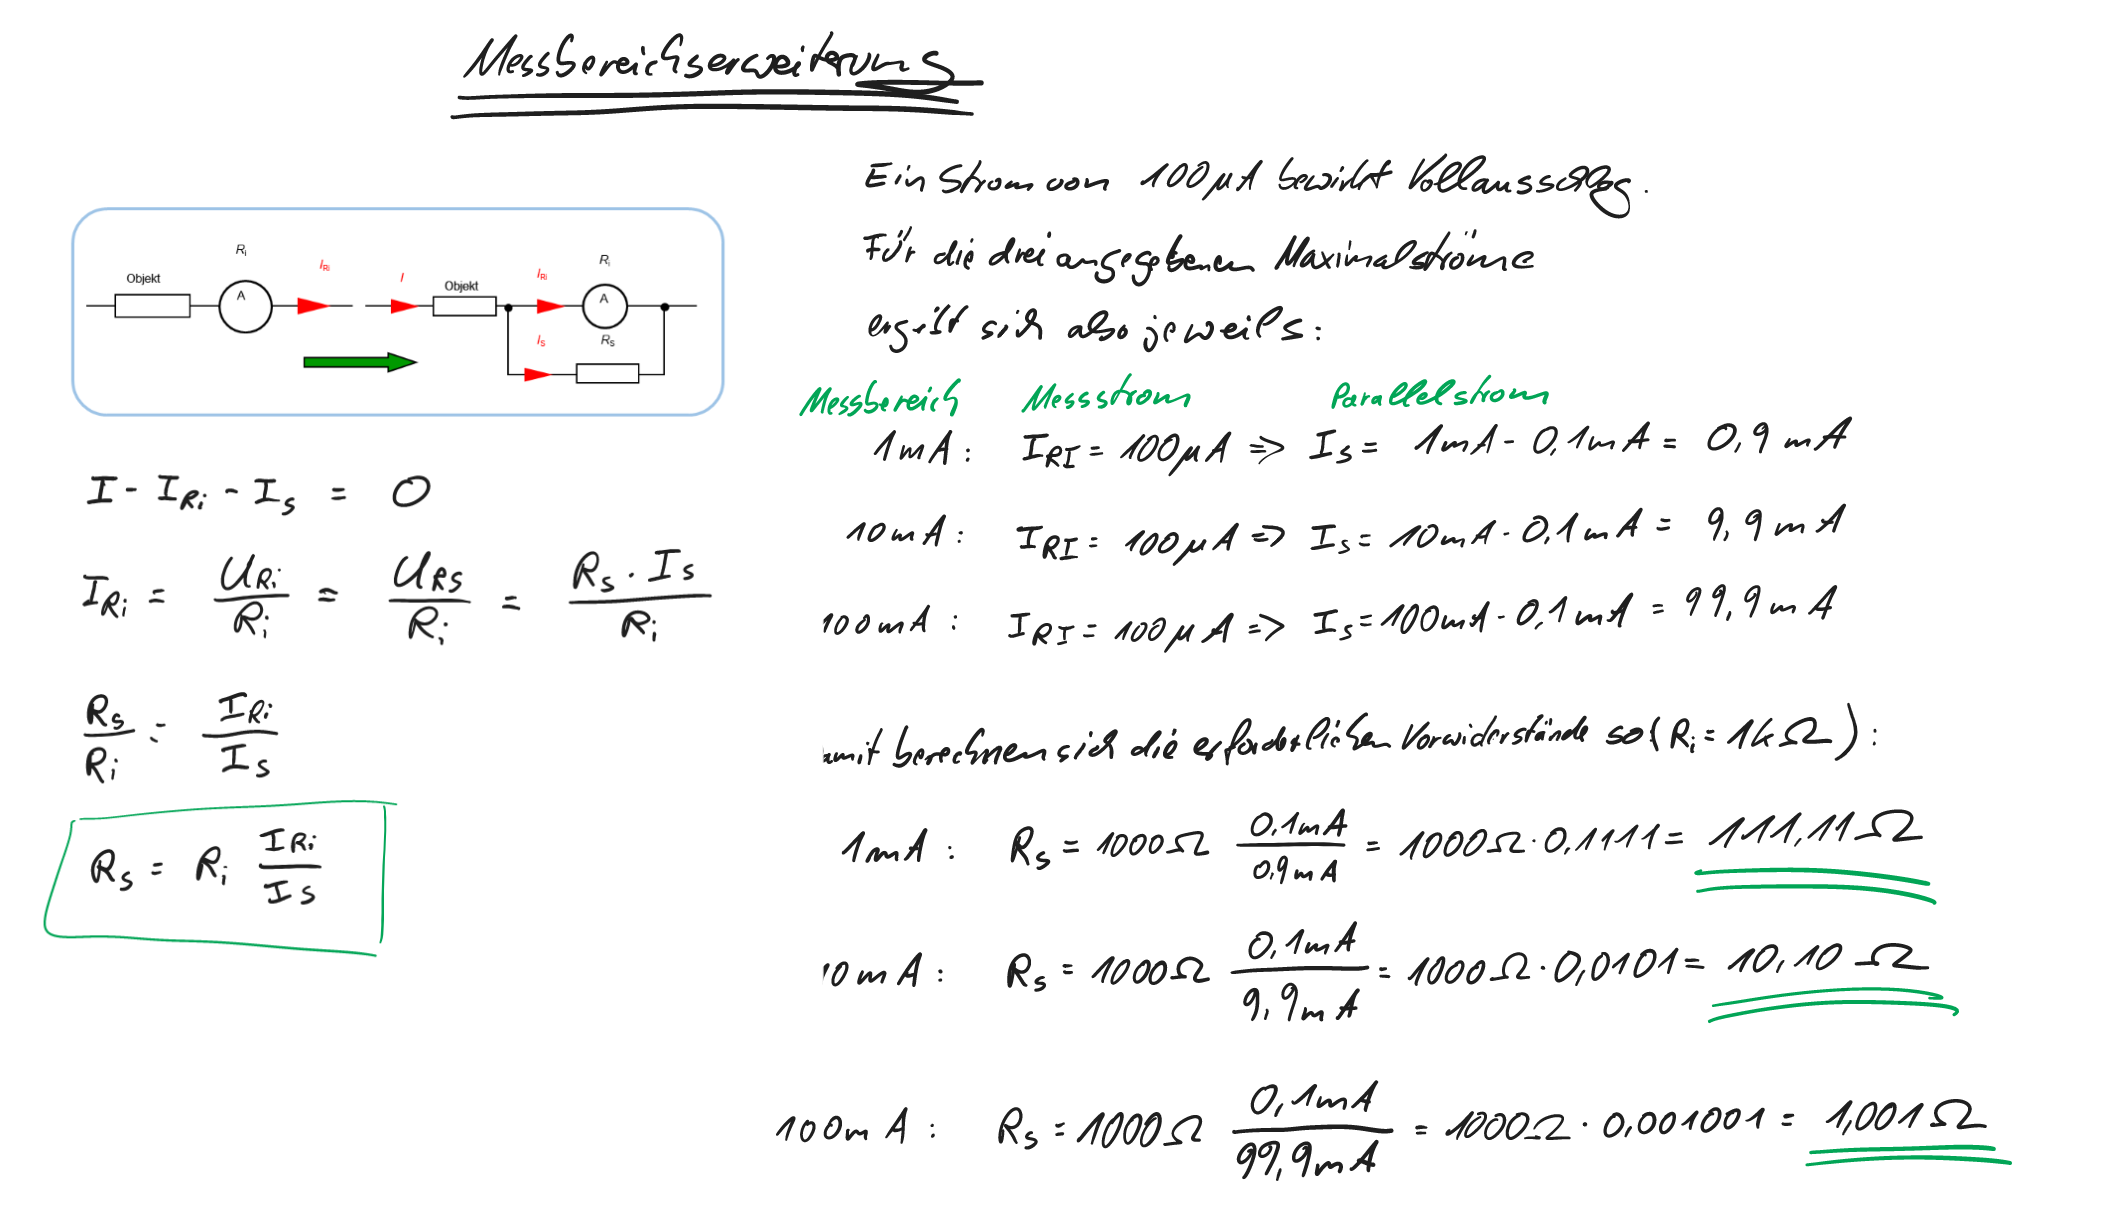 Messbereichserweiterung
Objekt Ri A IRi I Objekt IRi Ri A
IS RS
I - IRi - Is = 0
IRi = URi/Ri = URS/Ri = Rs · Is/Ri
Rs/Ri = IRi/Is
Rs = Ri IRi/Is
Ein Strom von 100µA bewirkt Vollausschlag.
Für die drei angegebenen Maximalströme
ergibt sich also jeweils:
Messbereich Messstrom Parallelstrom
1mA: IRI = 100µA => Is = 1mA - 0,1mA = 0,9 mA
10mA: IRI = 100µA => Is = 10mA - 0,1mA = 9,9 mA
100mA: IRI = 100µA => Is = 100mA - 0,1mA = 99,9mA
amit berechnen sich die erforderlichen Vorwiderstände so (Ri = 1kΩ):
1mA: Rs = 1000Ω 0,1mA/0,9mA = 1000Ω · 0,1111 = 111,11Ω
10mA: Rs = 1000Ω 0,1mA/9,9mA = 1000Ω · 0,0101 = 10,10 Ω
100mA: Rs = 1000Ω 0,1mA/99,9mA = 1000Ω · 0,001001 = 1,001Ω